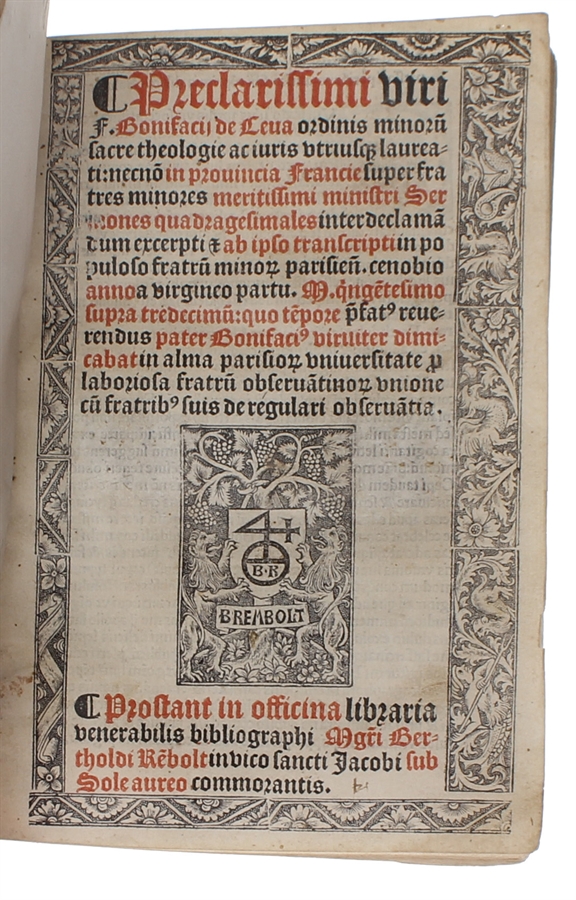 ¶ Preclarissimi viri
F. Bonifacij de Ceua ordinis minorū
sacre theologie ac iuris vtriusqꝫ laurea-
ti: necnō in prouincia Francie super fra
tres minores meritissimi ministri Ser
mones quadragesimales inter declamā
dum excerpti ⁊ ab ipso transcripti in po
puloso fratrū minoꝝ parisieñ. cenobio
anno a virgineo partu. M. q̄ngētesimo
supra tredecimū: quo tēpore p̄fatꝰ reue-
rendus pater Bonifaciꝰ viruiter dimi-
cabat in alma parisioꝝ vniuersitate ꝓ
laboriosa fratrū obseruātinoꝝ vnione
cū fratribꝰ suis de regulari obseruātia.
B·R
B REMBOLT
¶ Prostant in officina libraria
venerabilis bibliographi Mgr̄i Ber-
tholdi Rēbolt in vico sancti Jacobi sub
Sole aureo commorantis.